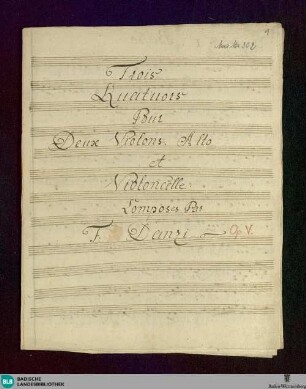 Trois
Quatuors
Pour
Deux Violons Alto
et
Violoncelle
Composés Par
F. Danzi Op V.
BLB BADISCHE
LANDESBIBLIOTHEK
Baden-Württemberg